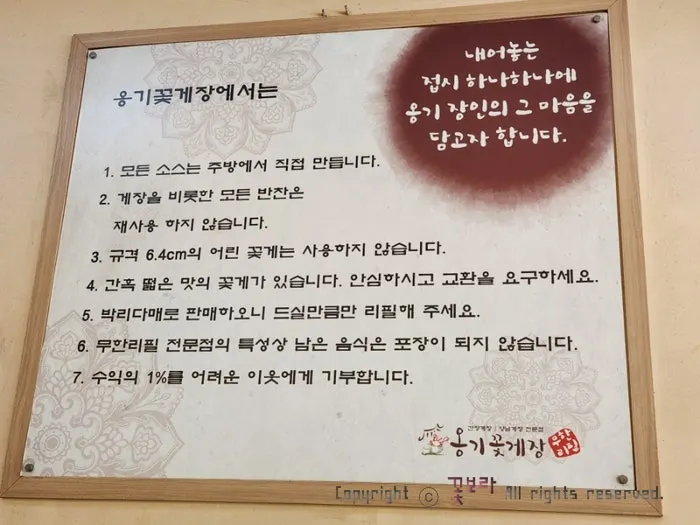 내어놓는
접시 하나하나에
옹기 장인의 그 마음을
담고자 합니다.
옹기꽃게장에서는
1. 모든 소스는 주방에서 직접 만듭니다.
2. 게장을 비롯한 모든 반찬은
재사용 하지 않습니다.
3. 규격 6.4cm의 어린 꽃게는 사용하지 않습니다.
4. 간혹 떫은 맛의 꽃게가 있습니다. 안심하시고 교환을 요구하세요.
5. 박리다매로 판매하오니 드실만큼만 리필해 주세요.
6. 무한리필 전문점의 특성상 남은 음식은 포장이 되지 않습니다.
7. 수익의 1%를 어려운 이웃에게 기부합니다.
간장게장 | 양념게장 전문점
옹기꽃게장
무한
리필
Copyright ⓒ 꽃보라 All rights reserved.